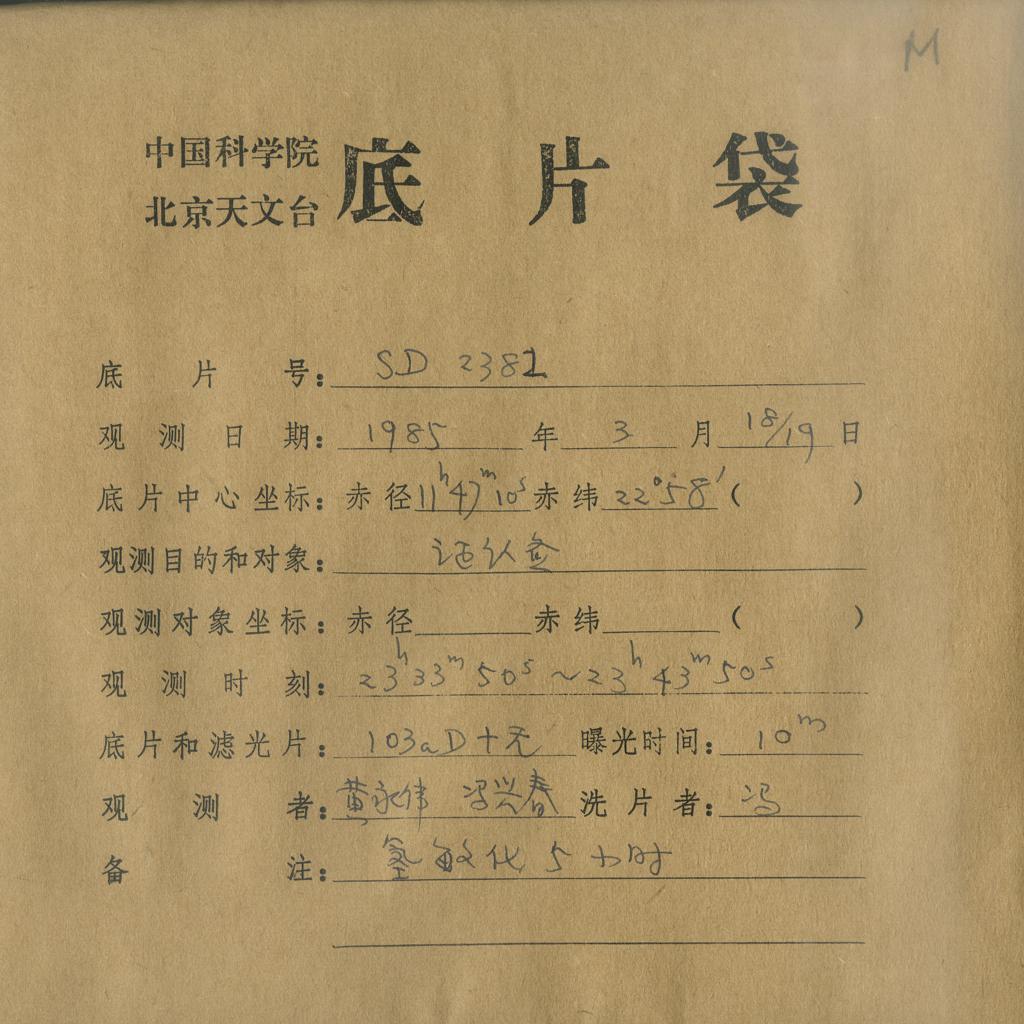 M
中国科学院
北京天文台
底片袋
底片号： SD 2382
观测日期： 1985 年 3 月 18/19 日
底片中心坐标： 赤径 11h47m10s 赤纬 22°58′ ( )
观测目的和对象： 证认
观测对象坐标： 赤径 赤纬 ( )
观测时刻： 23h33m50s ~ 23h43m50s
底片和滤光片： 103aD+无 曝光时间： 10m
观测者： 黄永伟 冯兴春 洗片者： 冯
备注： 氢敏化 5 小时